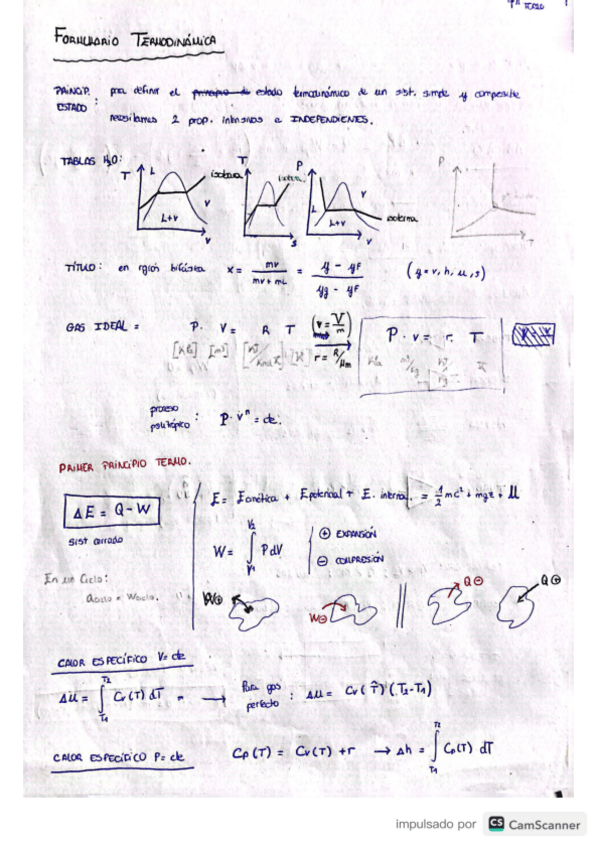 FORMULARIO TERMODINÁMICA
PRINCIP. ESTADO : para definir el principio de estado termodinámico de un sist. simple y compresible
necesitamos 2 prop. intensivas e INDEPENDIENTES.
TABLAS H₂O:
T L isobara V L+V v
T isobara s
P L V L+V isoterma v
P T
TÍTULO: en región bifásica x = mv / (mv + mL) = (y - yf) / (yg - yf) (y = v, h, u, s)
GAS IDEAL = P · V = R T (v = V/m) r = R/Mm P · v = r · T
[kPa] [m³] [kJ/kmol K] [K] kPa m³/kg kJ/kg K
proceso politrópico : P · vⁿ = cte.
PRIMER PRINCIPIO TERMO.
ΔE = Q - W
sist cerrado
E = Ecinética + Epotencial + E. interna. = 1/2 mc² + mgz + U
W = ∫ V1 V2 P dV
⊕ EXPANSIÓN
⊖ COMPRESIÓN
En un Ciclo:
Qciclo = Wciclo.
W⊕ W⊖ Q⊖ Q⊕
CALOR ESPECÍFICO V = cte
Δu = ∫ T1 T2 Cv(T) dT → Para gas perfecto : Δu = Cv(T̂)(T2 - T1)
CALOR ESPECÍFICO P = cte
Cp(T) = Cv(T) + r → Δh = ∫ T1 T2 Cp(T) dT
impulsado por CS CamScanner